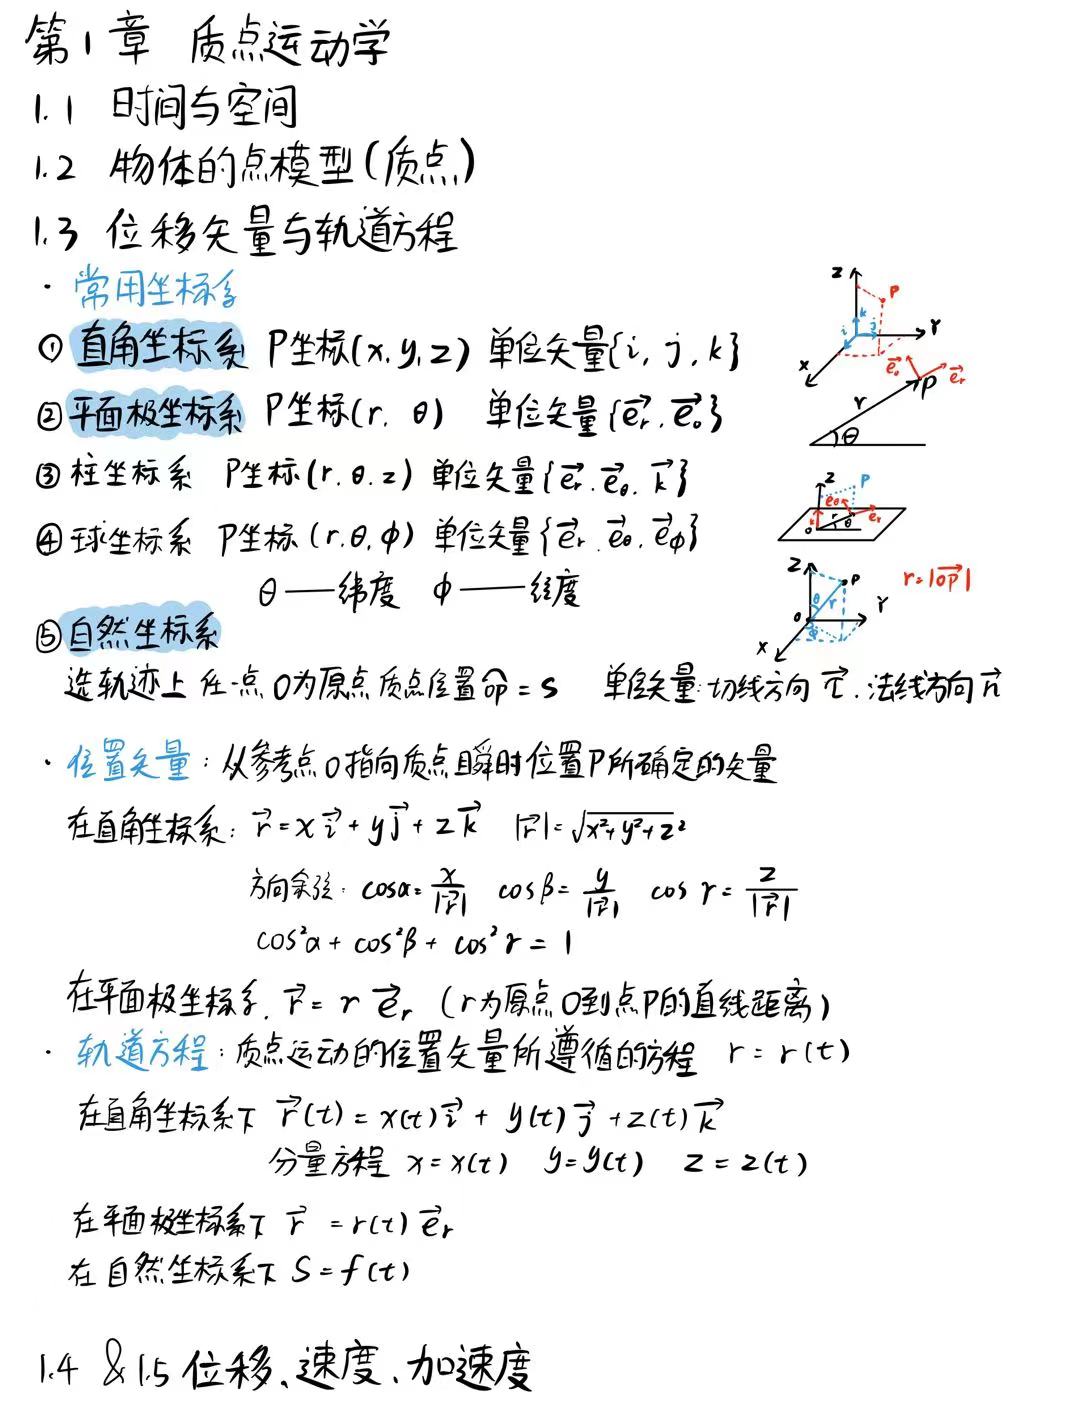 第1章 质点运动学
1.1 时间与空间
1.2 物体的点模型(质点)
1.3 位移矢量与轨道方程
· 常用坐标系
① 直角坐标系 P坐标(x,y,z) 单位矢量{i, j, k}
② 平面极坐标系 P坐标(r, θ) 单位矢量{e⃗r, e⃗θ}
③ 柱坐标系 P坐标(r, θ, z) 单位矢量{e⃗r, e⃗θ, k⃗}
④ 球坐标系 P坐标(r,θ,φ) 单位矢量{e⃗r, e⃗θ, e⃗φ}
θ——纬度 φ——经度
⑤ 自然坐标系
选轨迹上任一点O为原点 质点位置 = s 单位矢量:切线方向 τ⃗,法线方向 n⃗
Z
P
k
i
j
Y
X
e⃗θ
P
e⃗r
r
θ
Z
P
eθ
k
r
θ
er
O
Z
P
θ
r
O
φ
Y
X
r=|OP⃗|
· 位置矢量:从参考点O指向质点瞬时位置P所确定的矢量
在直角坐标系: r⃗ = x i⃗ + y j⃗ + z k⃗ |r⃗| = √x²+y²+z²
方向余弦: cosα = x/|r⃗| cosβ = y/|r⃗| cosγ = z/|r⃗|
cos²α + cos²β + cos²γ = 1
在平面极坐标系, r⃗ = r e⃗r (r为原点O到点P的直线距离)
· 轨道方程:质点运动的位置矢量所遵循的方程 r = r(t)
在直角坐标系下 r⃗(t) = x(t) i⃗ + y(t) j⃗ + z(t) k⃗
分量方程 x = x(t) y = y(t) z = z(t)
在平面极坐标系下 r⃗ = r(t) e⃗r
在自然坐标系下 S = f(t)
1.4 & 1.5 位移、速度、加速度